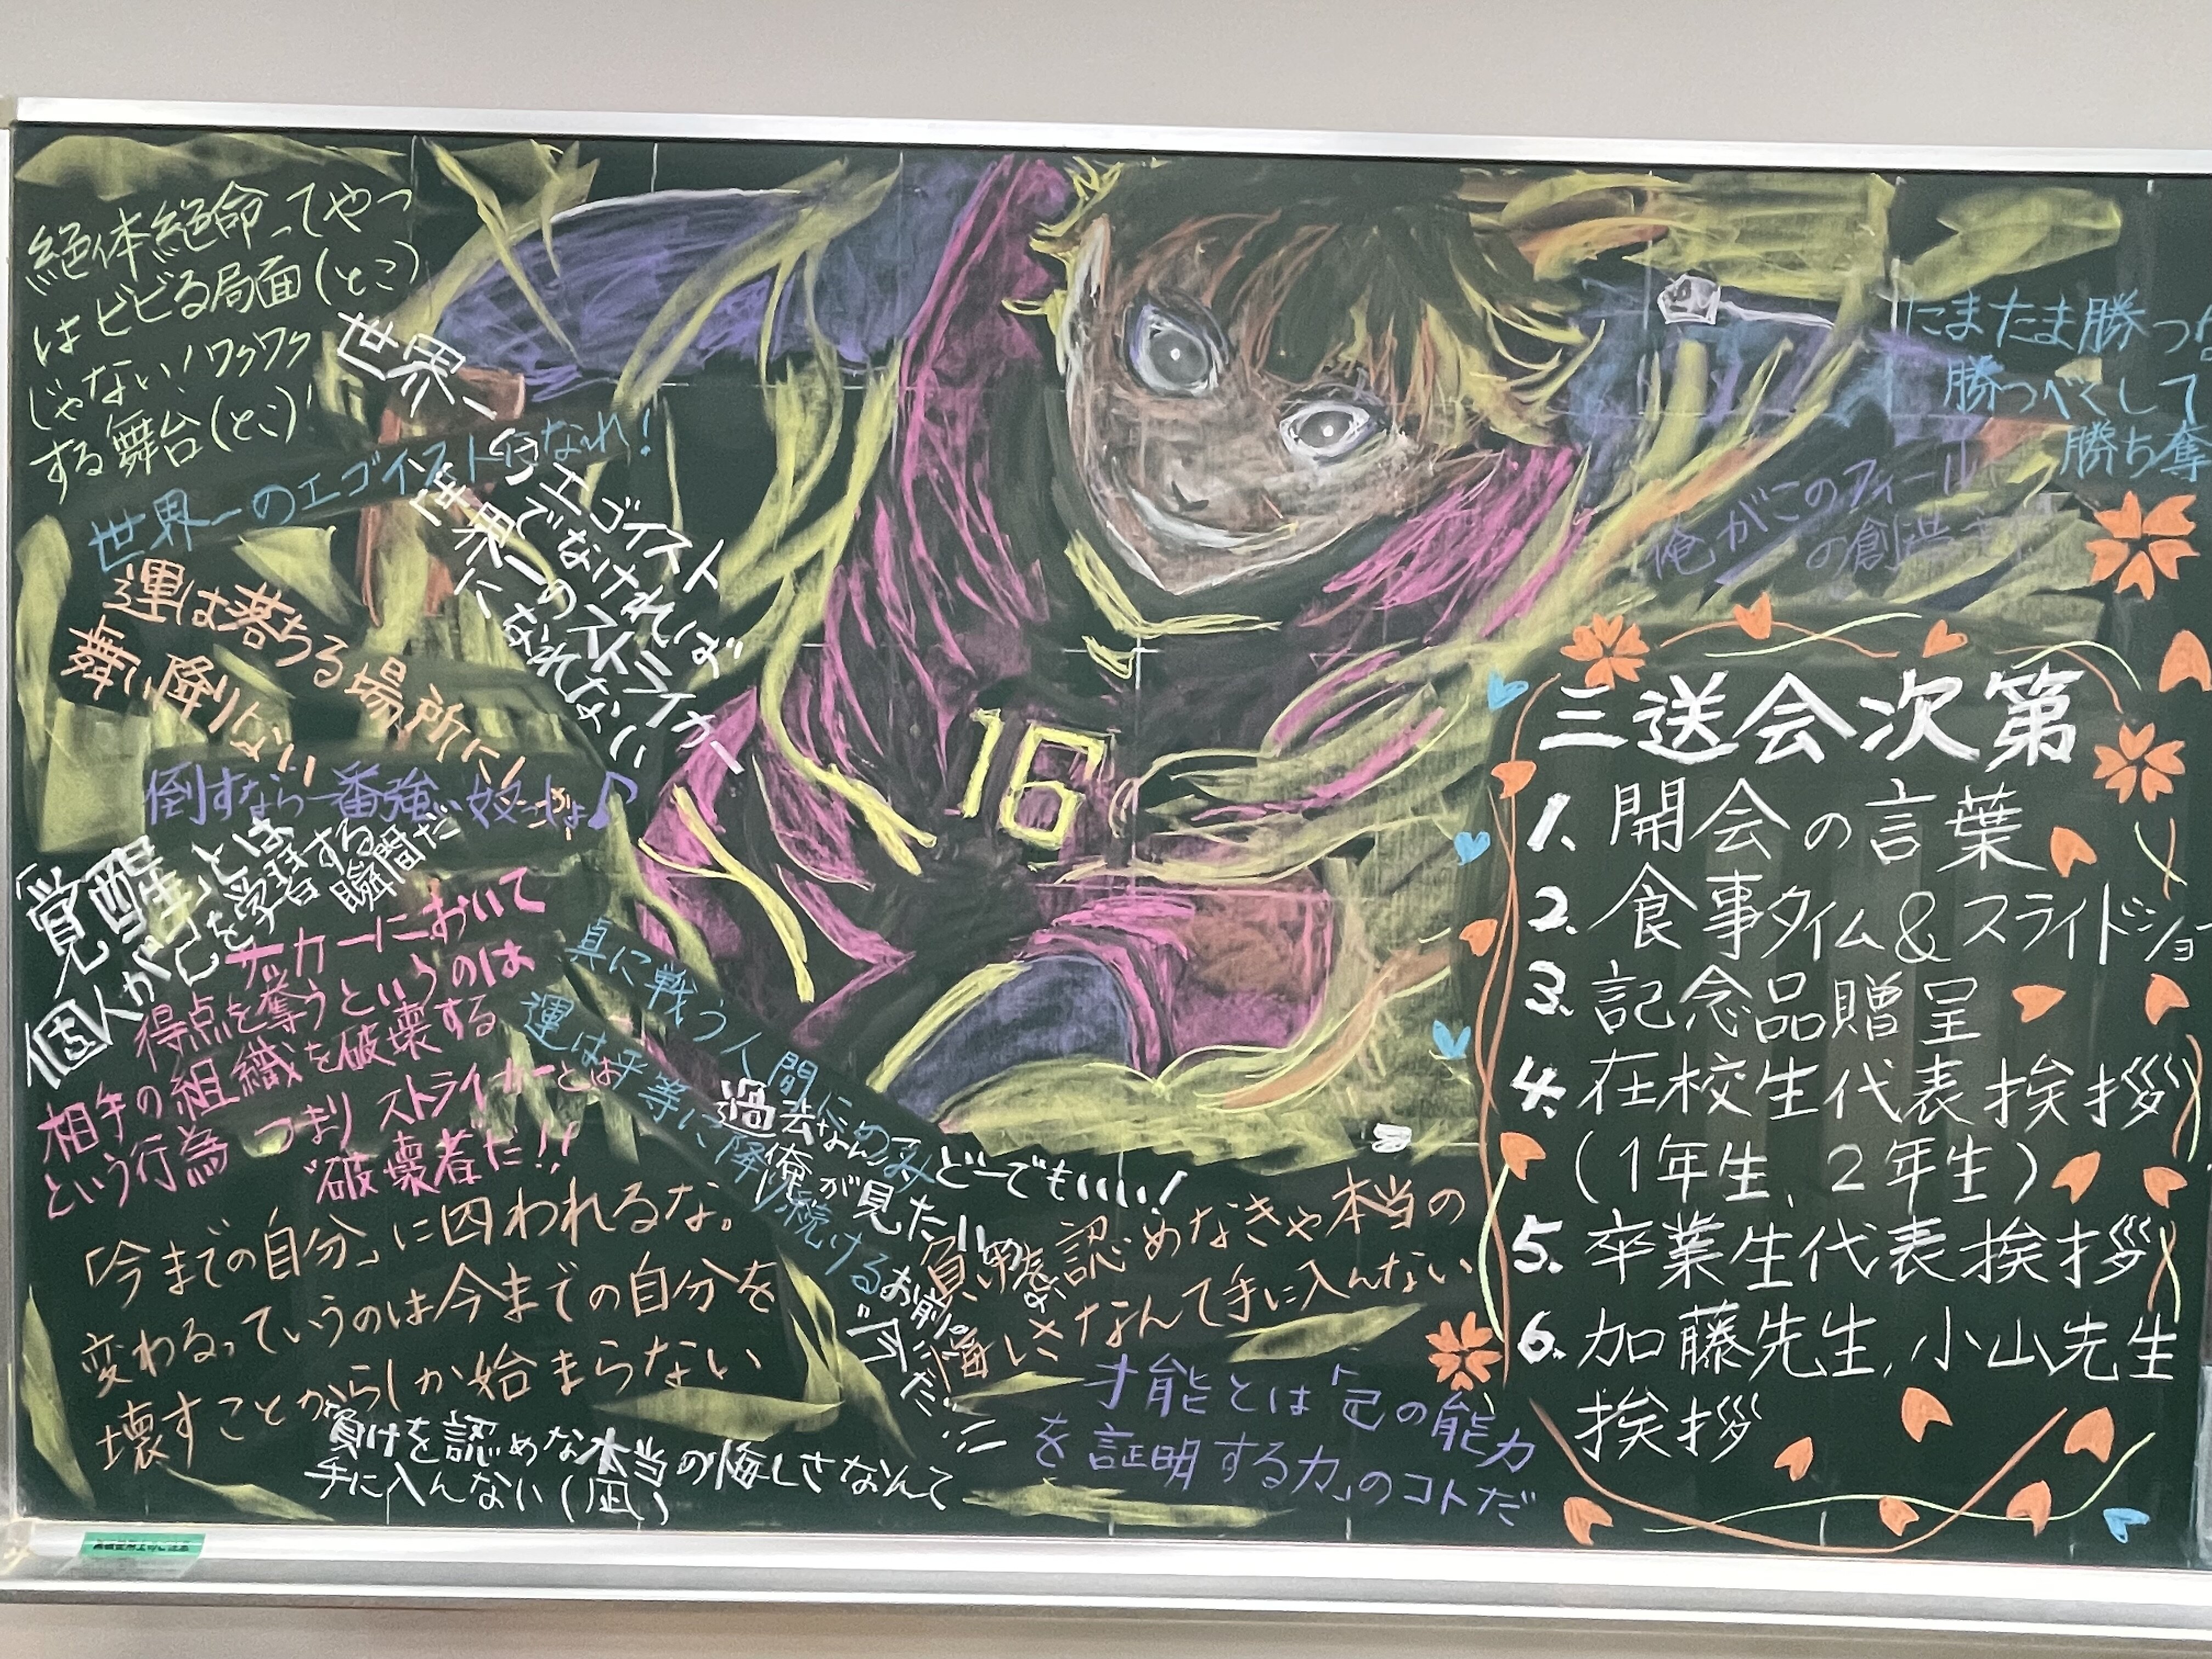 絶体絶命ってやつ
はビビる局面(とこ)
じゃない!ワクワク
する舞台(とこ)
世界一
のエゴイスト
でなければ
世界一のストライカー
になれない
世界一のエゴイストになれ!
運は落ちる場所に
舞い降りない
倒すなら一番強い奴っしょ♪
「覚醒」とは
個人が己を学習する
瞬間だ
サッカーにおいて
得点を奪うというのは
相手の組織を破壊する
という行為 つまり ストライカーとは
"破壊者だ!!
真に戦う人間にのみ
運は平等に降り続ける
過去なんかどーでもいい!
俺が見たいのは
お前の
"今だ"
「今までの自分」に囚われるな。
変わるっていうのは今までの自分を
壊すことからしか始まらない
負けを認めなきゃ本当の
悔しさなんて手に入んない
負けを認めな本当の悔しさなんて
手に入んない(凪)
才能とは「己の能力
を証明する力」のコトだ
16
たまたま勝つ
勝つべくして
勝ち奪
俺がこのフィール
の創造
三送会次第
1. 開会の言葉
2. 食事タイム&スライドショ
3. 記念品贈呈
4. 在校生代表挨拶
(1年生、2年生)
5. 卒業生代表挨拶
6. 加藤先生、小山先生
挨拶